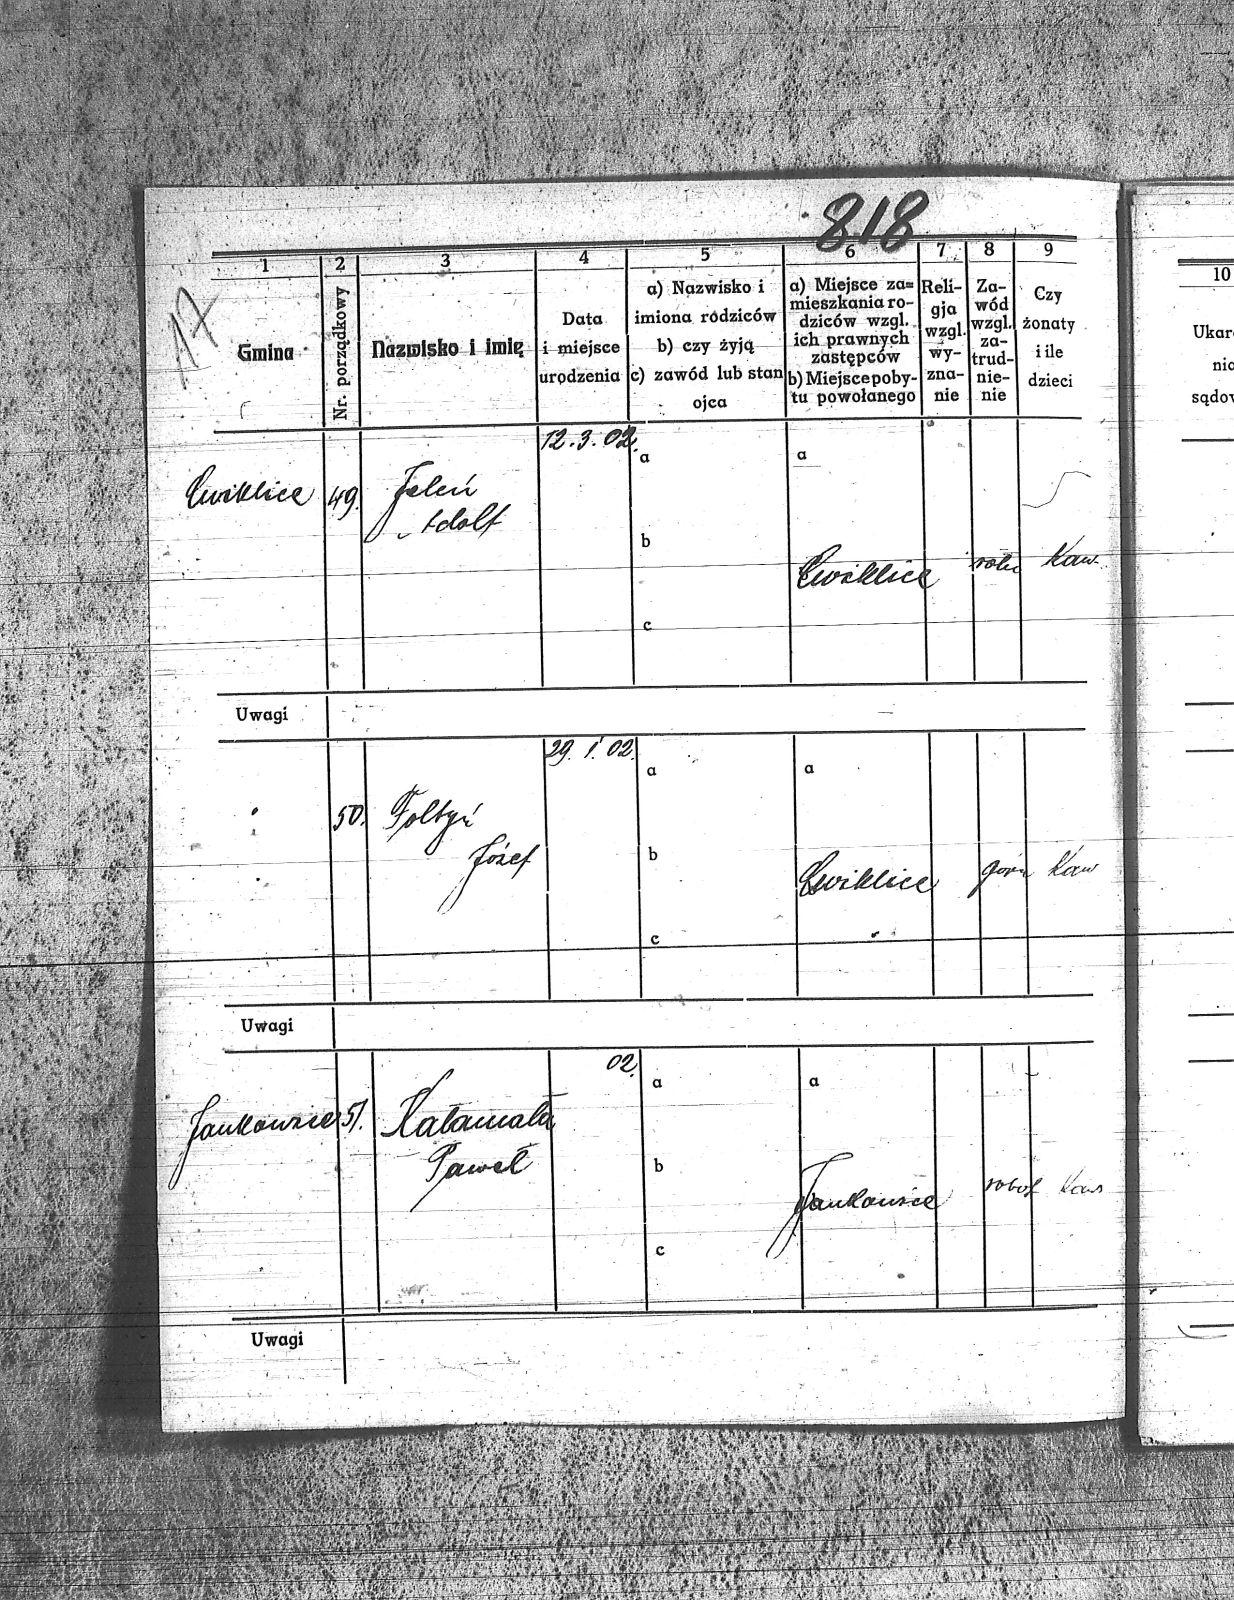 818
17
1 2 3 4 5 6 7 8 9
Gmina
Nr. porządkowy
Nazwisko i imię
Data
i miejsce
urodzenia
a) Nazwisko i
imiona rodziców
b) czy żyją
c) zawód lub stan
ojca
a) Miejsce za=
mieszkania ro-
dziców wzgl.
ich prawnych
zastępców
b) Miejsce poby-
tu powołanego
Reli-
gja
wzgl.
wy-
zna-
nie
Za-
wód
wzgl.
za-
trud-
nie-
nie
Czy
żonaty
i ile
dzieci
10
Ukara
nia
sądow
12.3.02.
a a
Cwiklice 49. Jeleń
Adolf
b
Cwiklice roln Kaw.
c
Uwagi
29.1.02.
a a
50. Foltyń
Józef
b
Cwiklice górn Kaw
c
Uwagi
02.
a a
Jankowice 51. Kałamała
Paweł
b
Jankowice robot Kaw
c
Uwagi